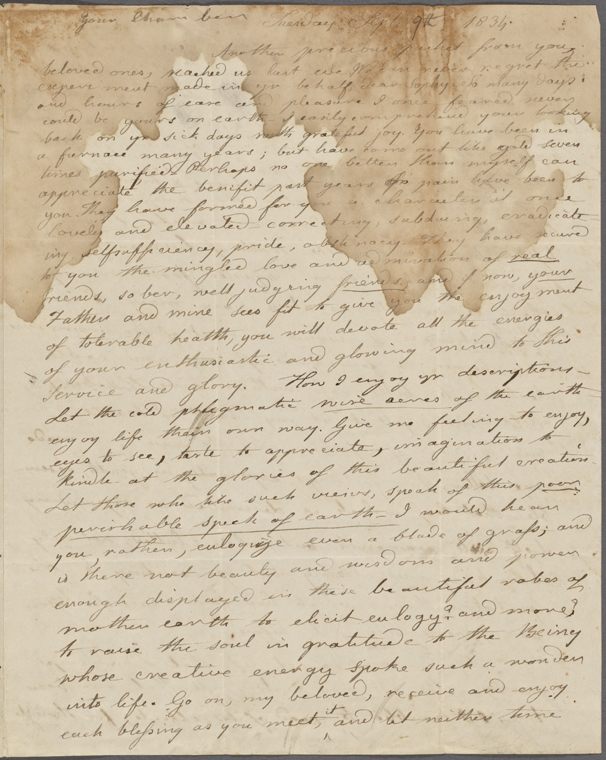 Your Chamber Tuesday Sept. 9th 1834.
Another precious packet from you
beloved ones, reached us last eve. Not in mere regret the
experiment made in yr behalf dear Sophy, is many days
and hours of ease and pleasure I once feared never
could be yours on earth. I easily comprehend your looking
back on yr sick days with grateful joy. You have been in
a furnace many years; but have come out like gold seven
times purified. Perhaps no one better than myself can
appreciate the benifit past years of pain have been to
you. They have formed for you a character at once
lovely and elevated correcting, subduing, eradicate
ing selfsufficiency, pride, obstinacy. They have secured
to you the mingled love and admiration of real
friends, sober, well judging friends, and if now, your
Father and mine sees fit to give you the enjoyment
of tolerable health, you will devote all the energies
of your enthusiastic and glowing mind to his
service and glory. How I enjoy yr descriptions—
Let the cold phlegmatic wise acres of the earth
enjoy life their own way. Give me feeling to enjoy,
eyes to see, taste to appreciate, imagination to
kindle at the glories of this beautiful creation.
Let those who like such views, speak of this poor
perishable speck of earth— I would hear
you, rather, eulogize even a blade of grass; and
is there not beauty and wisdom and power
enough displayed in these beautiful robes of
mother earth to elicit eulogy? and more?
to raise the soul in gratitude to the Being
whose creative energy spoke such a wonder
into life. Go on, my beloved, receive and enjoy
each blessing as you meet it, and let neither time